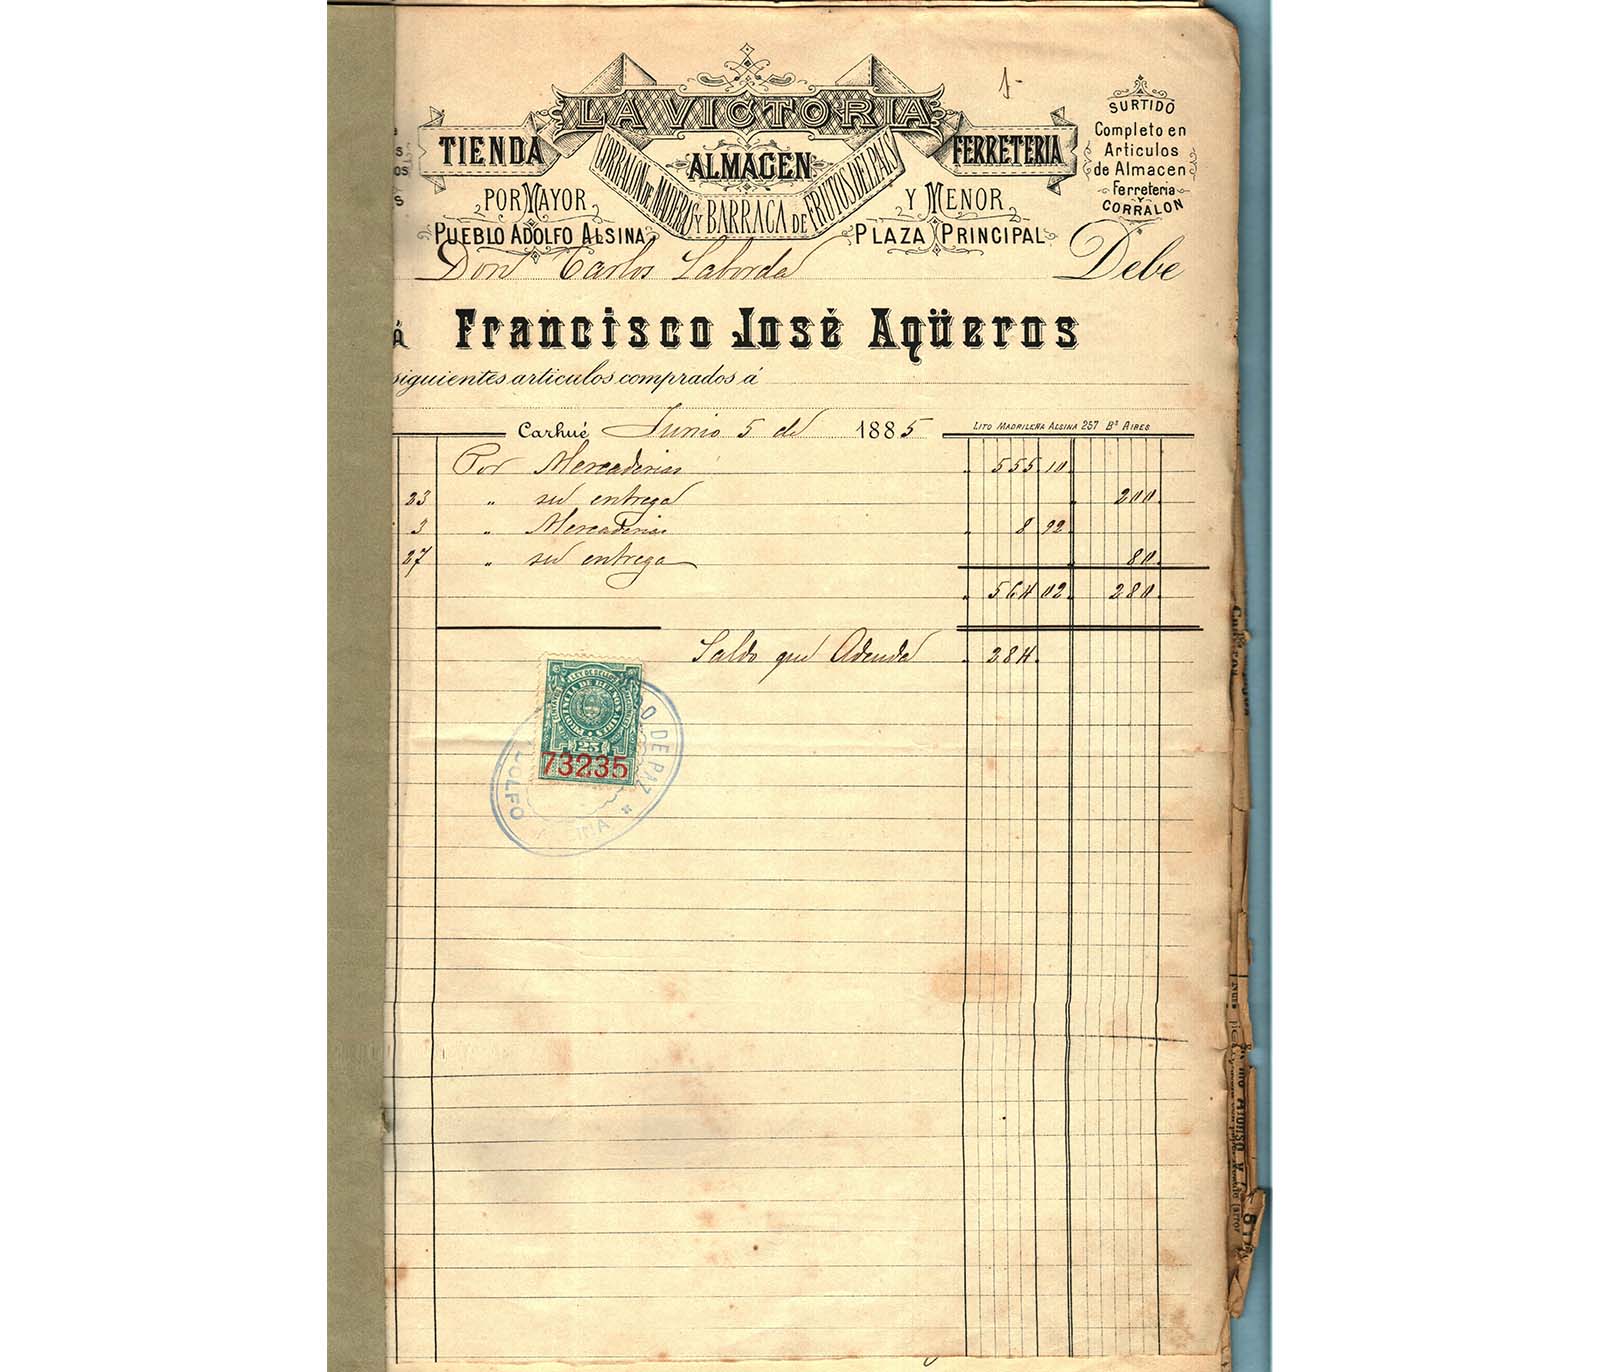 LA VICTORIA
TIENDA
ALMACEN
FERRETERIA
CORRALON DE MADERAS Y BARRACA DE FRUTOS DEL PAIS
POR MAYOR
Y MENOR
PUEBLO ADOLFO ALSINA
PLAZA PRINCIPAL
SURTIDO
Completo en
Articulos
de Almacen
Ferreteria
Y
CORRALON
Don Carlos Laborda Debe
Á Francisco José Aqüeros
siguientes articulos comprados á
Carhué Junio 5 de 1885
LITO MADRILEÑA ALSINA 257 Bs AIRES
Por Mercaderias 555 10
23 " su entrega 200
3 " Mercaderias 8 92
27 " su entrega 80
564 02 280
Saldo que Adeuda 284
PROVINCIA DE BUENOS AIRES
25
73235
DE PAZ
ADOLFO